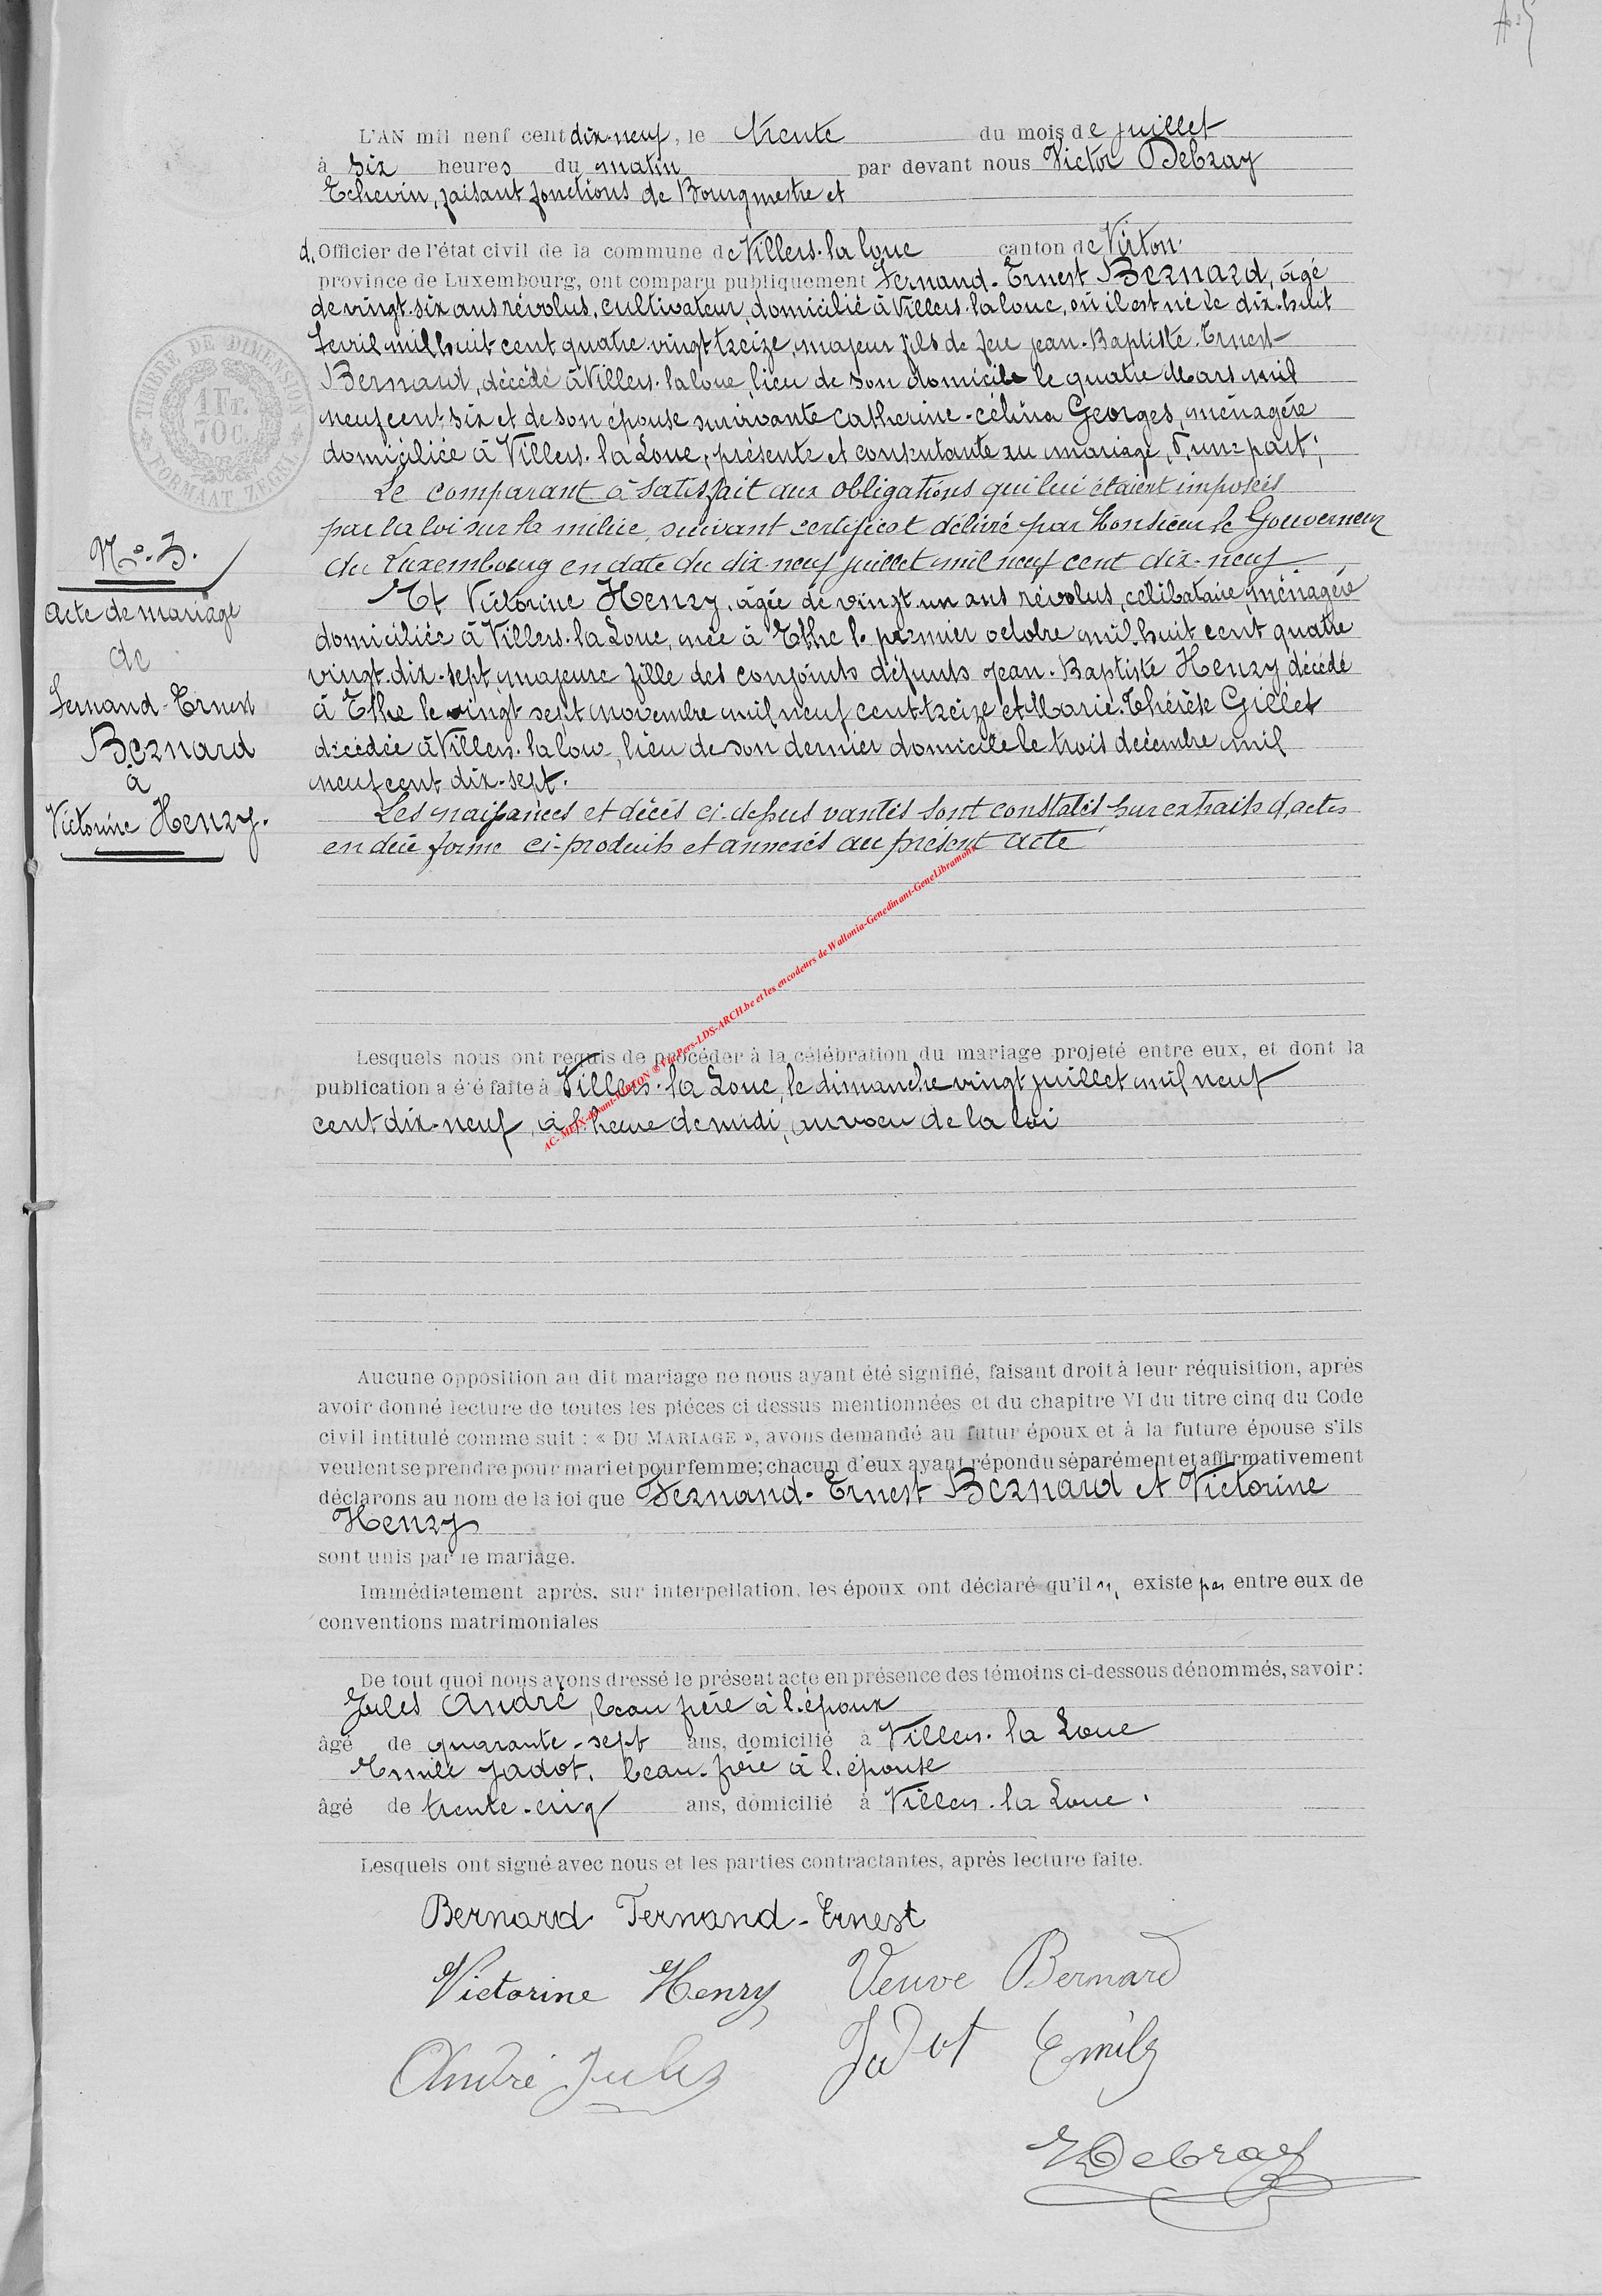 L'AN mil neuf cent dix-neuf, le trente du mois de juillet
à six heures du matin par devant nous Victor Debray
Echevin, faisant fonctions de Bourgmestre et
d. Officier de l'état civil de la commune de Villers-la-loue canton de Virton
province de Luxembourg, ont comparu publiquement Fernand-Ernest BERNARD, âgé
de vingt-six ans révolus, cultivateur, domicilié à Villers-la-loue, où il est né le dix-huit
mil huit cent quatre vingt treize, majeur fils de feu jean-Baptiste-Ernest
Bernard, décédé à Villers-la-loue, lieu de son domicile le quatre Mars mil
neuf cent six et de son épouse survivante Catherine-célina Georges, ménagère
domiciliée à Villers-la-Loue, présente et consentante au mariage, d'une part;
Le comparant à satisfait aux obligations qui lui étaient imposées
par la loi sur la milice, suivant certificat délivré par Monsieur le Gouverneur
du Luxembourg en date du dix-neuf juillet mil neuf cent dix-neuf
Et Victorine Henry, âgée de vingt-un ans révolus, célibataire, ménagère
domiciliée à Villers-la-Loue, née à Ethe le premier octobre mil huit cent quatre
vingt-dix-sept, majeure fille des conjoints défunts Jean-Baptiste Henry décédé
à Ethe le vingt sept novembre mil neuf cent-treize et Marie-Thérèse Gillet
décédée à Villers-la-loue, lieu de son dernier domicile le trois décembre mil
neuf cent dix-sept.
Les naissances et décès ci-dessus vantés sont constatés sur extraits d'actes
en due forme ci-produits et annexés au présent acte
N°. 3.
Acte de mariage
de
Fernand-Ernest
Bernard
à
Victorine Henry.
TIMBRE DE DIMENSION
1 Fr.
70 C.
FORMAAT ZEGEL
Lesquels nous ont requis de procéder à la célébration du mariage projeté entre eux, et dont la
publication a été faite à Villers-la Loue, le dimanche vingt juillet mil neuf
cent dix-neuf, à l'heure de midi, au voeu de la loi
Aucune opposition au dit mariage ne nous ayant été signifié, faisant droit à leur réquisition, après
avoir donné lecture de toutes les pièces ci dessus mentionnées et du chapitre VI du titre cinq du Code
civil intitulé comme suit : « DU MARIAGE », avons demandé au futur époux et à la future épouse s'ils
veulent se prendre pour mari et pour femme; chacun d'eux ayant répondu séparément et affirmativement
déclarons au nom de la loi que Fernand-Ernest Bernard et Victorine
Henry
sont unis par le mariage.
Immédiatement après, sur interpellation, les époux ont déclaré qu'il n' existe pas entre eux de
conventions matrimoniales
De tout quoi nous avons dressé le présent acte en présence des témoins ci-dessous dénommés, savoir :
Jules André, beau frère à l'époux
âgé de quarante-sept ans, domicilié à Villers-la Loue
Emile Jadot, beau-frère à l'épouse
âgé de trente-cinq ans, domicilié à Villers-la Loue.
Lesquels ont signé avec nous et les parties contractantes, après lecture faite.
Bernard Fernand-Ernest
Victorine Henry Veuve Bernard
André Jules Jadot Emile
VDebray